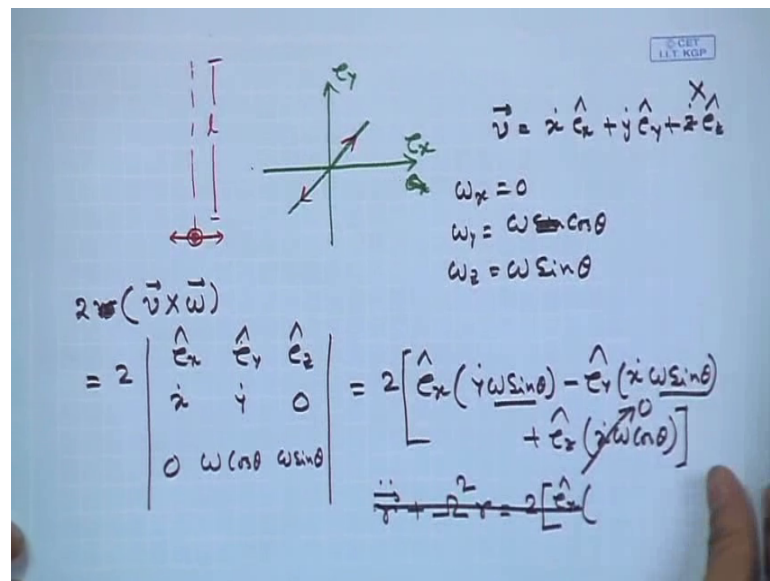 © CET
I.I.T. KGP
l
e_y
e_x
v⃗ = ẋ ê_x + ẏ ê_y + ż ê_z
ω_x = 0
ω_y = ω cosθ
ω_z = ω sinθ
2 (v⃗ × ω⃗)
= 2 | ê_x ê_y ê_z |
| ẋ ẏ 0 |
| 0 ω cosθ ω sinθ |
= 2 [ ê_x (ẏ ω sinθ) − ê_y (ẋ ω sinθ)
+ ê_z (ẋ ω cosθ) ] 0
r̈ + Ω² r = 2 [ ê_x (